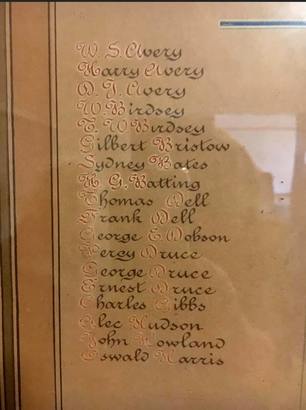 W. S. Avery
Harry Avery
W. Birdsey
T. W Birdsey
Gilbert Bristow
Sydney Bates
H. G. Batting
Thomas Dell
Frank Dell
George E Dobson
Percy Druce
George Druce
Ernest Druce
Charles Gibbs
Alec Hudson
John Howland
Oswald Harris